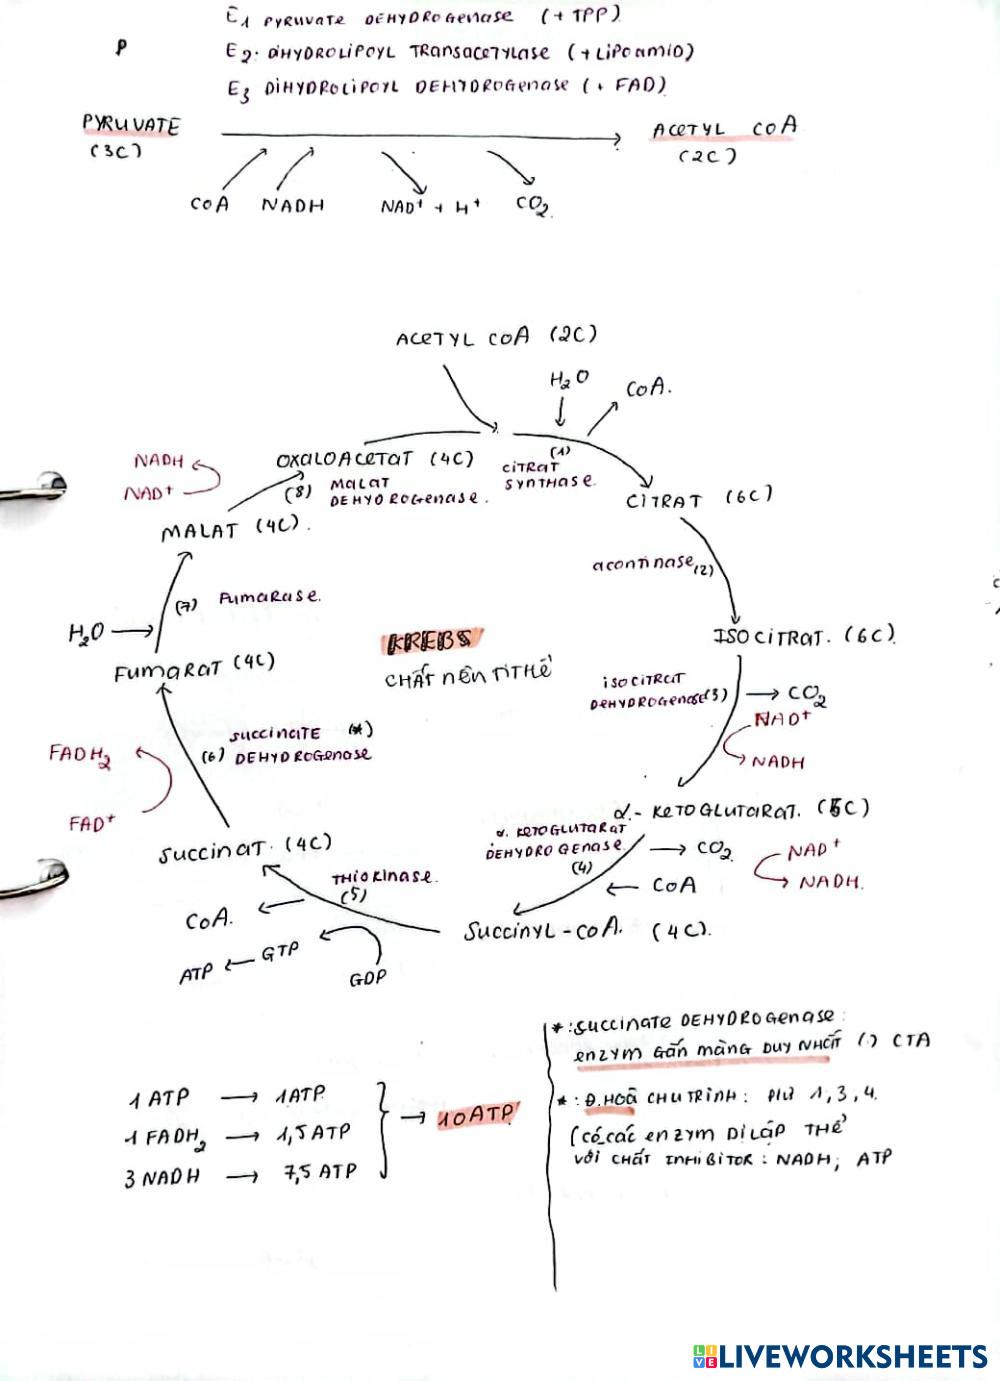 E1 PYRUVATE DEHYDROGENASE (+ TPP)
P
E2. DIHYDROLIPOYL TRANSACETYLASE (+ LIPOAMID)
E3 DIHYDROLIPOYL DEHYDROGENASE (+ FAD)
PYRUVATE
(3C)
ACETYL COA
(2C)
COA NADH NAD+ + H+ CO2
ACETYL COA (2C)
H2O
COA.
(1)
CITRAT
SYNTHASE.
OXALOACETAT (4C)
NADH
NAD+
(8) MALAT
DEHYDROGENASE.
CITRAT (6C)
MALAT (4C).
ACONTINASE (2)
(7) FUMARASE.
H2O
KREBS
CHẤT NỀN TI THỂ
ISOCITRAT. (6C)
FUMARAT (4C)
ISOCITRAT
DEHYDROGENASE (3)
CO2
NAD+
NADH
SUCCINATE (*)
(6) DEHYDROGENASE
FADH2
FAD+
α.- KETOGLUTARAT. (5C)
α. KETOGLUTARAT
DEHYDROGENASE
(4)
CO2
NAD+
NADH.
COA
SUCCINAT. (4C)
THIOKINASE.
(5)
COA.
SUCCINYL-COA. (4C).
ATP GTP
GDP
*: SUCCINATE DEHYDROGENASE:
ENZYM GẮN MÀNG DUY NHẤT (.) CTA
1 ATP → 1ATP
1 FADH2 → 1,5 ATP
3 NADH → 7,5 ATP
→ 10ATP
*: Đ.HOÀ CHU TRÌNH: PƯ 1, 3, 4.
(CÓ CÁC ENZYM DỊ LẬP THỂ
VỚI CHẤT INHIBITOR: NADH; ATP
LIVEWORKSHEETS